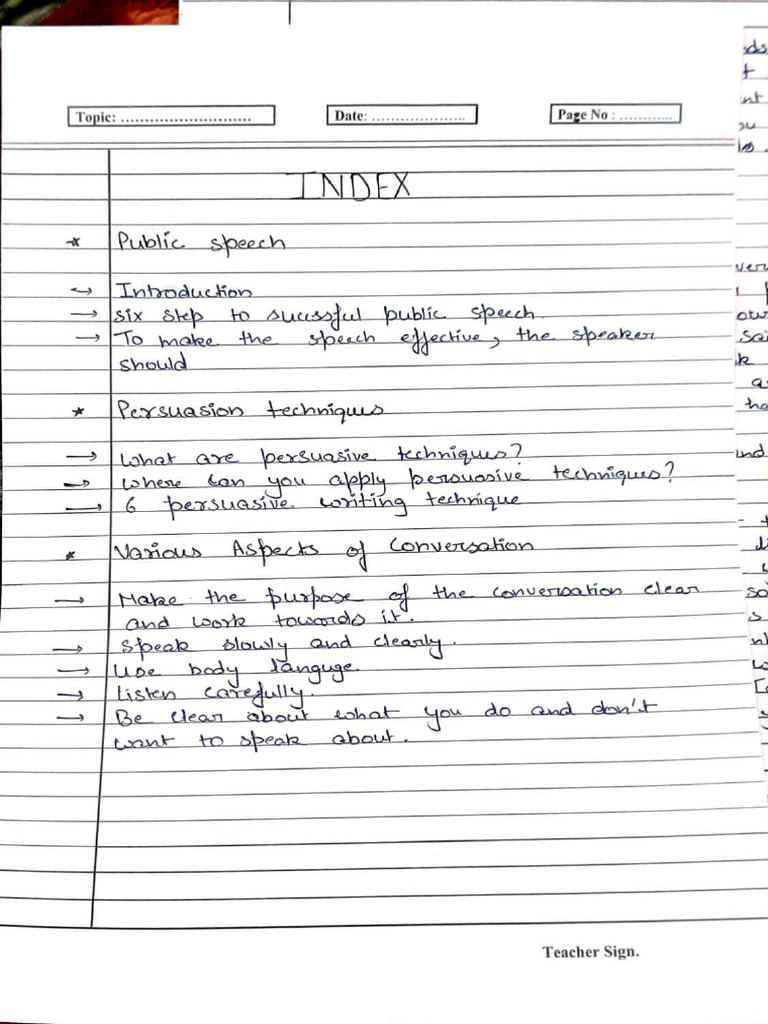 Topic: ............................
Date: .....................
Page No : ............
INDEX
* Public speech
→ Introduction
→ six step to sucessful public speech.
→ To make the speech effective, the speaker
should
* Persuasion techniques
→ What are persuasive techniques?
→ Where can you apply persuasive techniques?
→ 6 persuasive writing technique
* Various Aspects of Conversation
→ Make the purpose of the conversation clear
and work towards it.
→ Speak slowly and clearly.
→ Use body languge
→ Listen carefully.
→ Be clear about what you do and don't
want to speak about.
Teacher Sign.